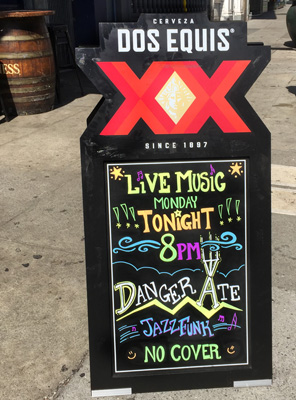 CERVEZA
DOS EQUIS
XX
SINCE 1897
LiVE MUSiC
MONDAY
!!! TONiGHT !!!
8PM
DANGER ATE
JAZZFUNK
NO COVER
ESS